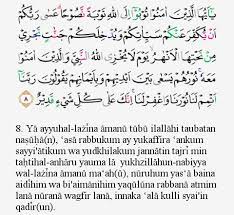 يٰٓاَيُّهَا الَّذِيْنَ اٰمَنُوْا تُوْبُوْٓا اِلَى اللّٰهِ تَوْبَةً نَّصُوْحًاۗ عَسٰى رَبُّكُمْ
اَنْ يُّكَفِّرَ عَنْكُمْ سَيِّاٰتِكُمْ وَيُدْخِلَكُمْ جَنّٰتٍ تَجْرِيْ
مِنْ تَحْتِهَا الْاَنْهٰرُۙ يَوْمَ لَا يُخْزِى اللّٰهُ النَّبِيَّ وَالَّذِيْنَ اٰمَنُوْا
مَعَهٗۚ نُوْرُهُمْ يَسْعٰى بَيْنَ اَيْدِيْهِمْ وَبِاَيْمَانِهِمْ يَقُوْلُوْنَ رَبَّنَآ
اَتْمِمْ لَنَا نُوْرَنَا وَاغْفِرْ لَنَاۚ اِنَّكَ عَلٰى كُلِّ شَيْءٍ قَدِيْرٌ ٨
8. Yā ayyuhal-lażīna āmanū tūbū ilallāhi taubatan
naṣūḥā(n), 'asā rabbukum ay yukaffira 'ankum
sayyi'ātikum wa yudkhilakum jannātin tajrī min
taḥtihal-anhāru yauma lā yukhzillāhun-nabiyya
wal-lażīna āmanū ma'ah(ū), nūruhum yas'ā baina
aidīhim wa bi'aimānihim yaqūlūna rabbanā atmim
lanā nūranā wagfir lanā, innaka 'alā kulli syai'in
qadīr(un).